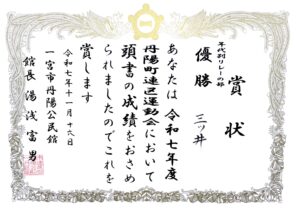 賞状
年代別リレーの部
優勝 三ツ井
あなたは令和七年度
丹陽町連区運動会において
頭書の成績をおさめ
られましたのでこれを
賞します
令和七年十一月十六日
一宮市丹陽公民館
館長 湯浅富男